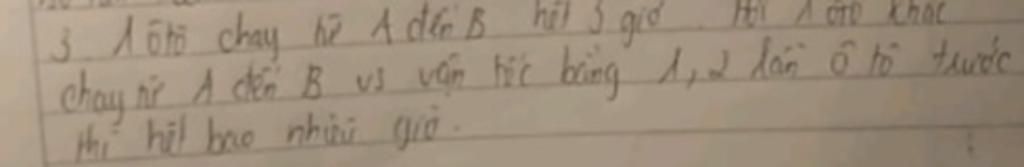 3. 1 ôtô chạy từ A đến B hết 3 giờ. Hỏi 1 ôtô khác
chạy từ A đến B vs vận tốc bằng 1,2 lần ô tô trước
thì hết bao nhiêu giờ.